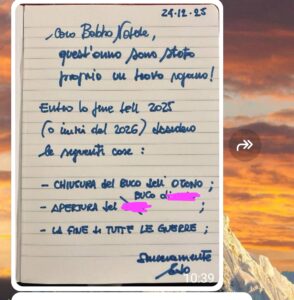 24.12.25
Caro Babbo Natale,
quest'anno sono stato
proprio un bravo ragazzo!
Entro la fine dell 2025
(o inizi del 2026) desidero
le seguenti cose:
- CHIUSURA del BUCO dell'OZONO;
BUCO di
- APERTURA del ;
- LA FINE di TUTTE LE GUERRE;
Sinceramente
10:39